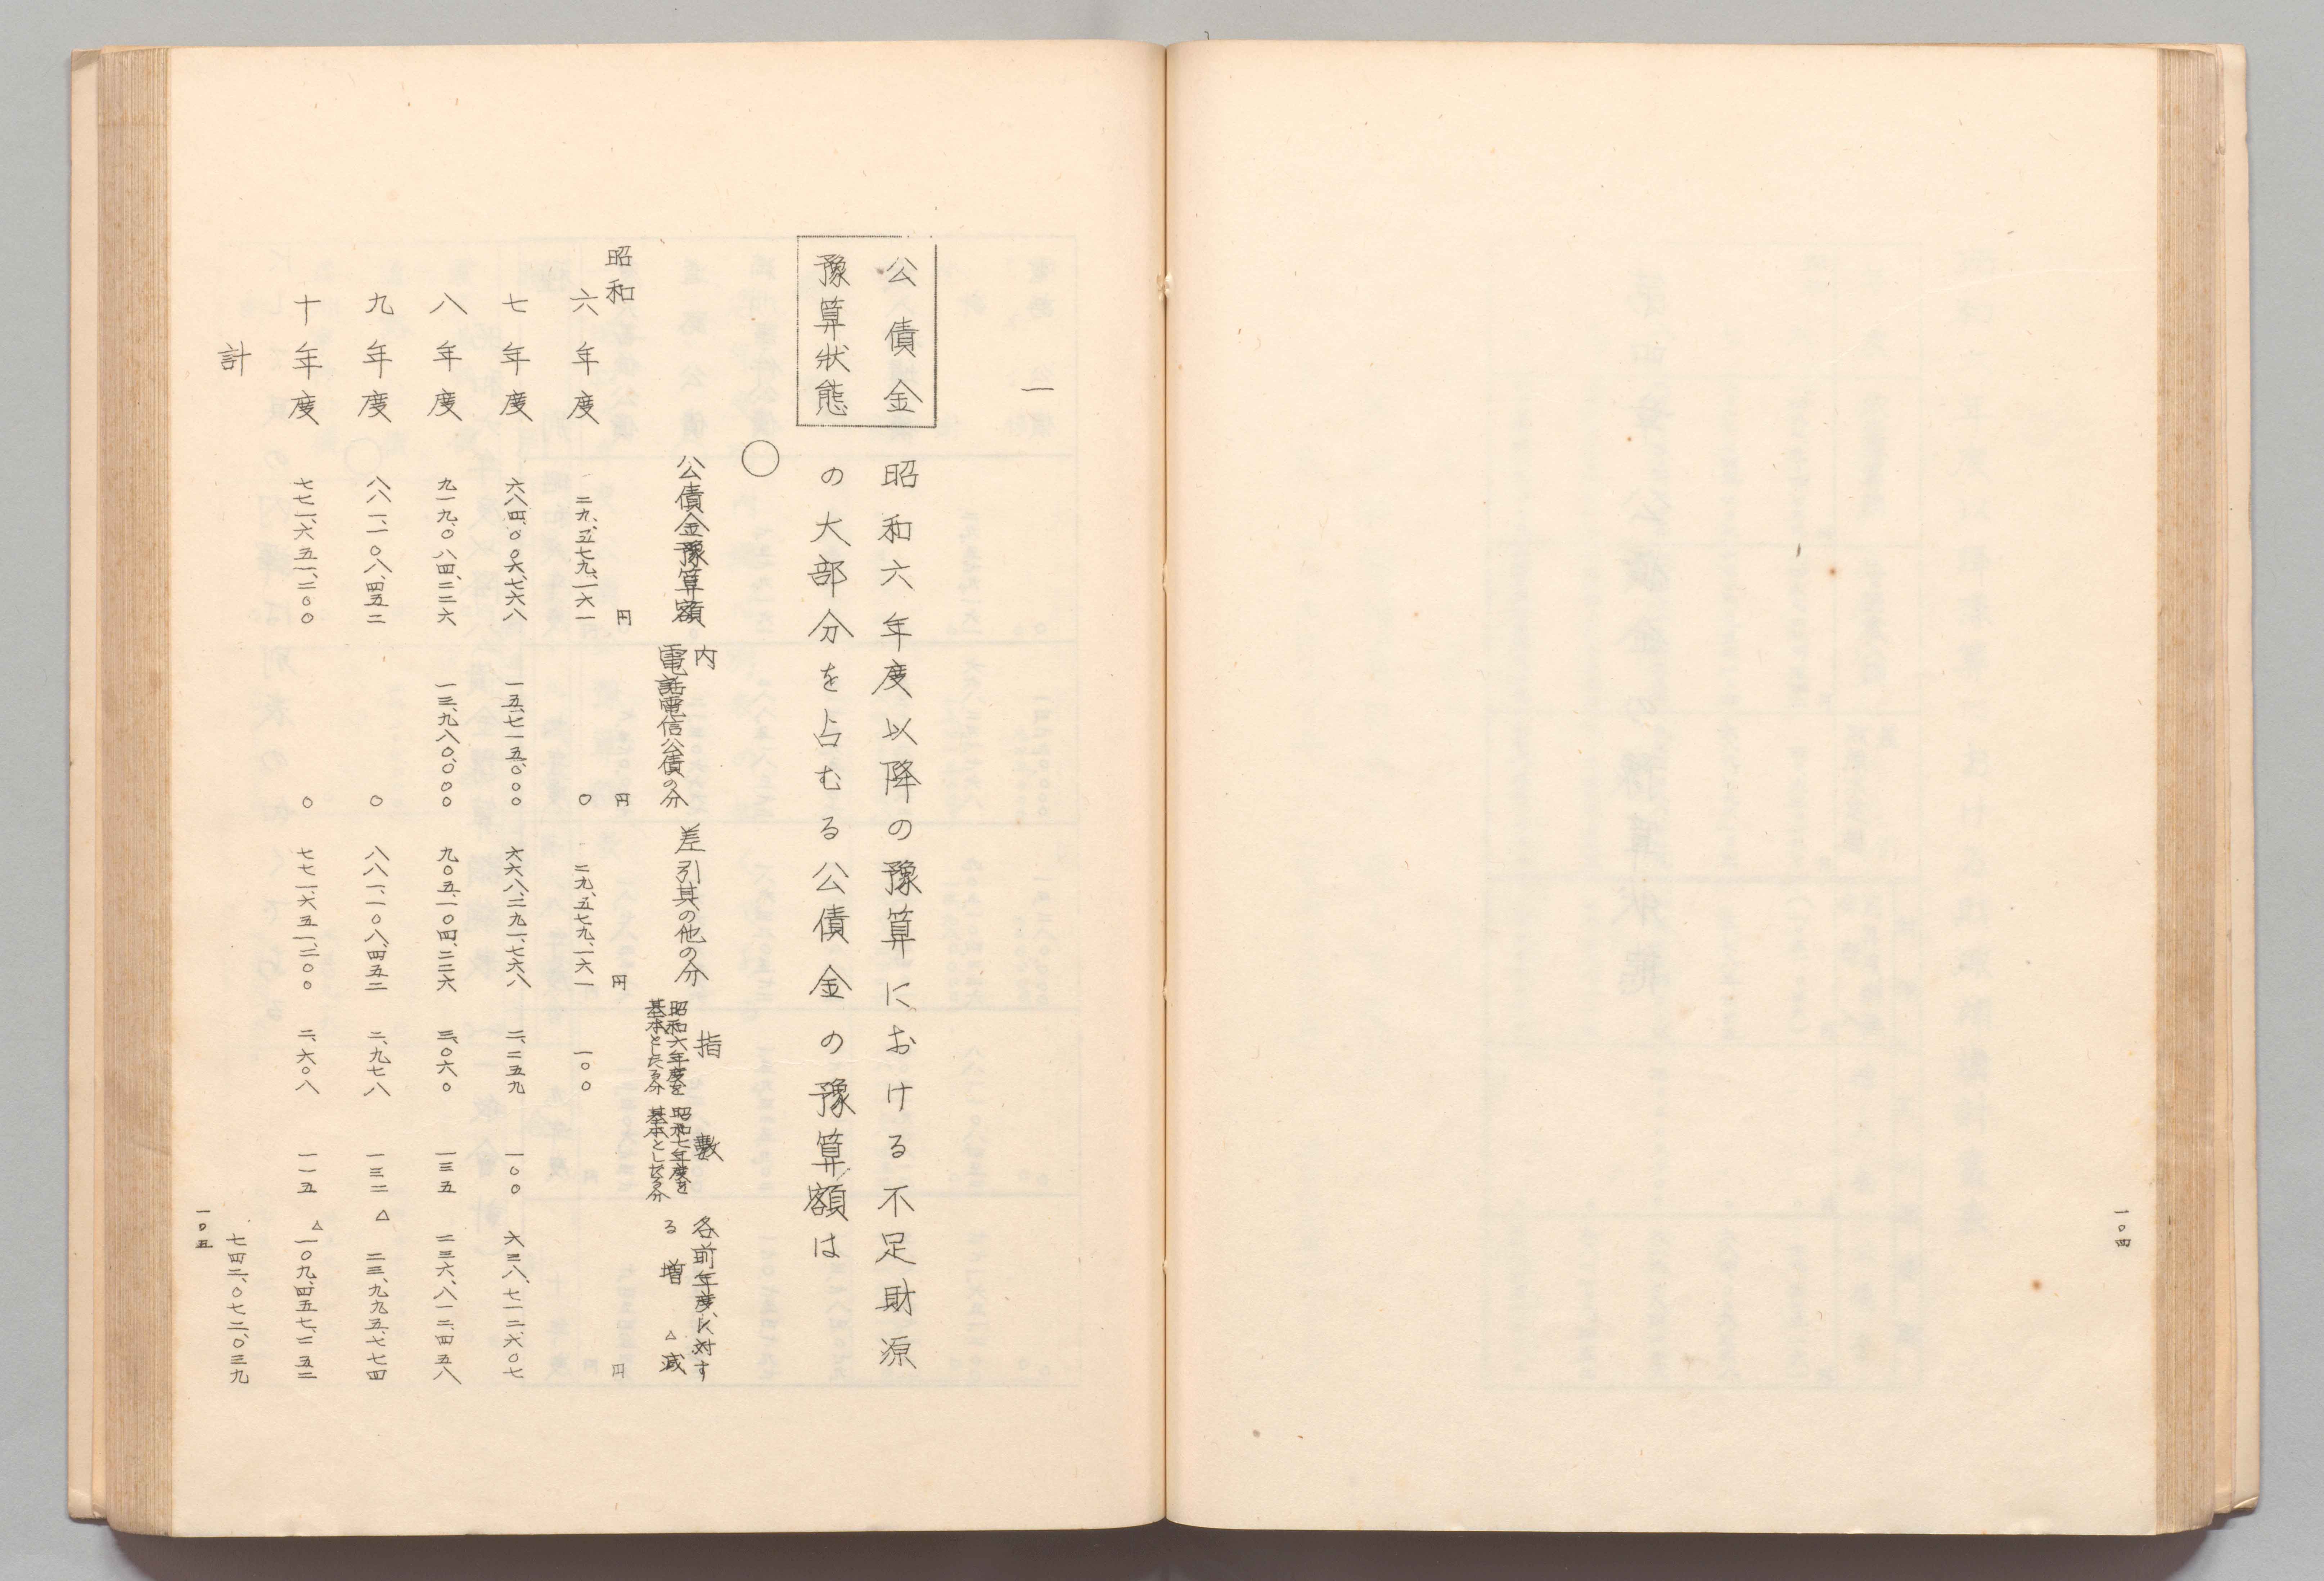 一〇四
一
公債金
豫算状態
昭和六年度以降の豫算における不足財源
の大部分を占むる公債金の豫算額は
○
公債金豫算額
内
電話電信公債の分
差引其の他の分
指数
昭和六年度を
基本としたる分
昭和七年度を
基本としたる分
各前年度に対す
る増△減
昭和 円 円 円 円
六年度 二九、五七九、一六一 〇 二九、五七九、一六一 一〇〇
七年度 六八四、〇〇六、七六八 一五、七一五、〇〇〇 六六八、二九一、七六八 二、二五九 一〇〇 六三八、七一二、六〇七
八年度 九一九、〇八四、二二六 一三、九八〇、〇〇〇 九〇五、一〇四、二二六 三、〇六〇 一三五 二三六、八一二、四五八
九年度 八八一、一〇八、四五二 〇 八八一、一〇八、四五二 二、九七八 一三二 △二三、九九五、七七四
十年度 七七一、六五一、二〇〇 〇 七七一、六五一、二〇〇 二、六〇八 一一五 △一〇九、四五七、二五二
計 七四二、〇七二、〇三九
一〇五